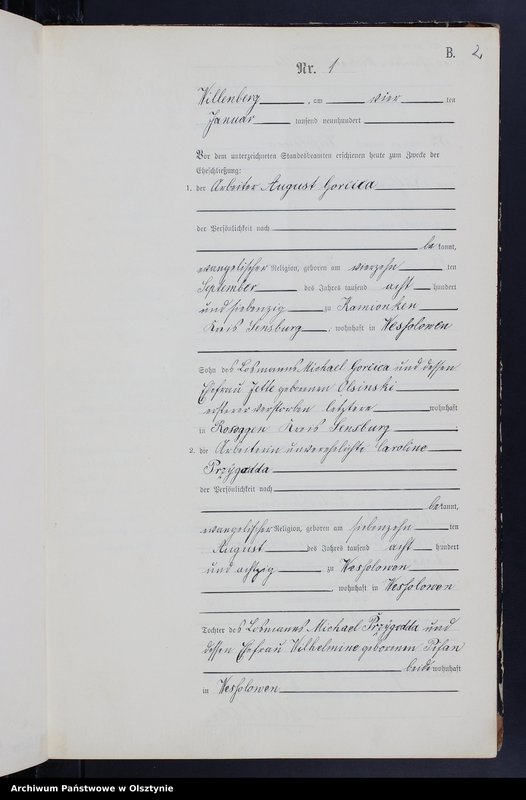 B. 2
Nr. 1
Willenberg, am vier ten
Januar tausend neunhundert
Vor dem unterzeichneten Standesbeamten erschienen heute zum Zwecke der
Eheschließung:
1. der Arbeiter August Gorcica
der Persönlichkeit nach
bekannt,
evangelischer Religion, geboren am vierzehn ten
September des Jahres tausend acht hundert
und siebenzig zu Kamionken
Kreis Sensburg, wohnhaft in Wessolowen
Sohn des Losmanns Michael Gorcica und dessen
Ehefrau Jette geborenen Olsinski
ersterer verstorben letztere wohnhaft
in Rosoggen Kreis Sensburg.
2. die Arbeiterin unverehelichte Caroline
Przygodda
der Persönlichkeit nach
bekannt,
evangelischer Religion, geboren am siebenzehn ten
August des Jahres tausend acht hundert
und achtzig zu Wessolowen
, wohnhaft in Wessolowen
Tochter des Losmanns Michael Przygodda und
dessen Ehefrau Wilhelmine geborenen
beide wohnhaft
in Wessolowen
Archiwum Państwowe w Olsztynie